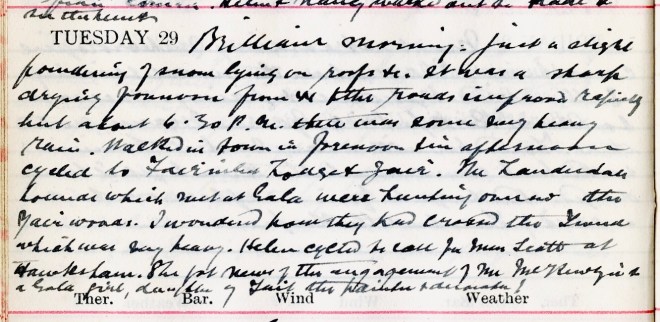 in the hunt
TUESDAY 29 Brilliant morning. Just a slight
powdering of snow lying on roofs &c. It was a sharp
drying forenoon from & the roads improved rapidly
but about 6.30 P.M. there was some very heavy
rain. Walked in town in forenoon & in afternoon
cycled to Fairnilee Lodge & Yair. The Lauderdale
hounds which met at Gala were hunting over on the
Yair woods. I wondered how they had crossed the Tweed
which was very heavy. Helen cycled to call for Miss Scott at
She got news of the engagement of Mr
a Gala girl, daughter of Tait the Painter & decorator!
Ther. Bar. Wind Weather